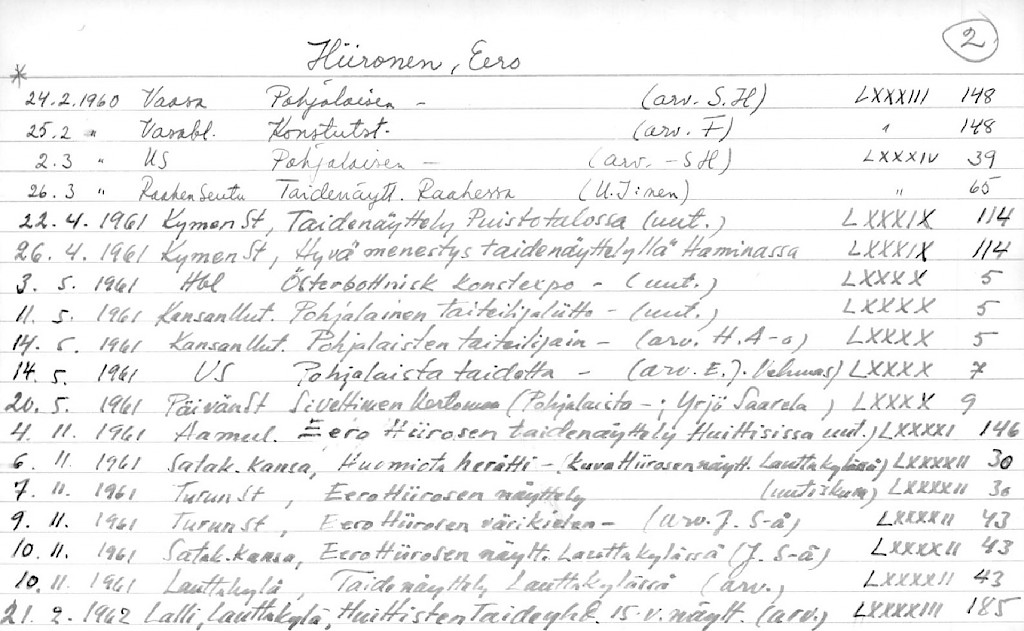 2
Hiironen, Eero
*
24.2.1960 Vaasa Pohjalaisen - (arv. S.H) LXXXIII 148
25.2 " Vasabl. Konstutst. (arv. F) " 148
2.3 " US Pohjalaisen - (arv. - SH) LXXXIV 39
26.3 " Raahen Seutu Taidenäytt. Raahessa (U.J:nen) " 65
22. 4. 1961 KymenSt, Taidenäyttely Puistotalossa (uut.) LXXXIX 114
26. 4. 1961 KymenSt, Hyvä menestys taidenäyttelyllä Haminassa LXXXIX 114
3. 5. 1961 Hbl Österbottnisk konstexpo - (uut.) LXXXX 5
11. 5. 1961 KansanUut. Pohjalainen taiteilijaliitto - (uut.) LXXXX 5
14. 5. 1961 KansanUut. Pohjalaisten taiteilijain - (arv. H.A-o) LXXXX 5
14. 5. 1961 US Pohjalaista taidetta - (arv. E.J. Vehmas) LXXXX 7
20. 5. 1961 PäivänSt Siveltimen kertomaa (Pohjalaista - ; Yrjö Saarela) LXXXX 9
4. 11. 1961 Aamul. Eero Hiirosen taidenäyttely Huittisissa uut.) LXXXXI 146
6. 11. 1961 Satak. Kansa, Huomiota herätti - (kuva Hiirosen näytt. Lauttakylässä) LXXXXII 30
7. 11. 1961 TurunSt, Eero Hiirosen näyttely (uutiskuva) LXXXXII 30
9. 11. 1961 TurunSt, Eero Hiirosen värikielen - (arv. J. S-ä) LXXXXII 43
10. 11. 1961 Satak. Kansa, Eero Hiirosen näytt. Lauttakylässä (J. S-ä) LXXXXII 43
10. 11. 1961 Lauttakylä, Taidenäyttely Lauttakylässä (arv.) LXXXXII 43
21. 2. 1962 Lalli, Lauttakylä, Huittisten Taideyhd. 15-v. näytt. (arv.) LXXXXIII 185